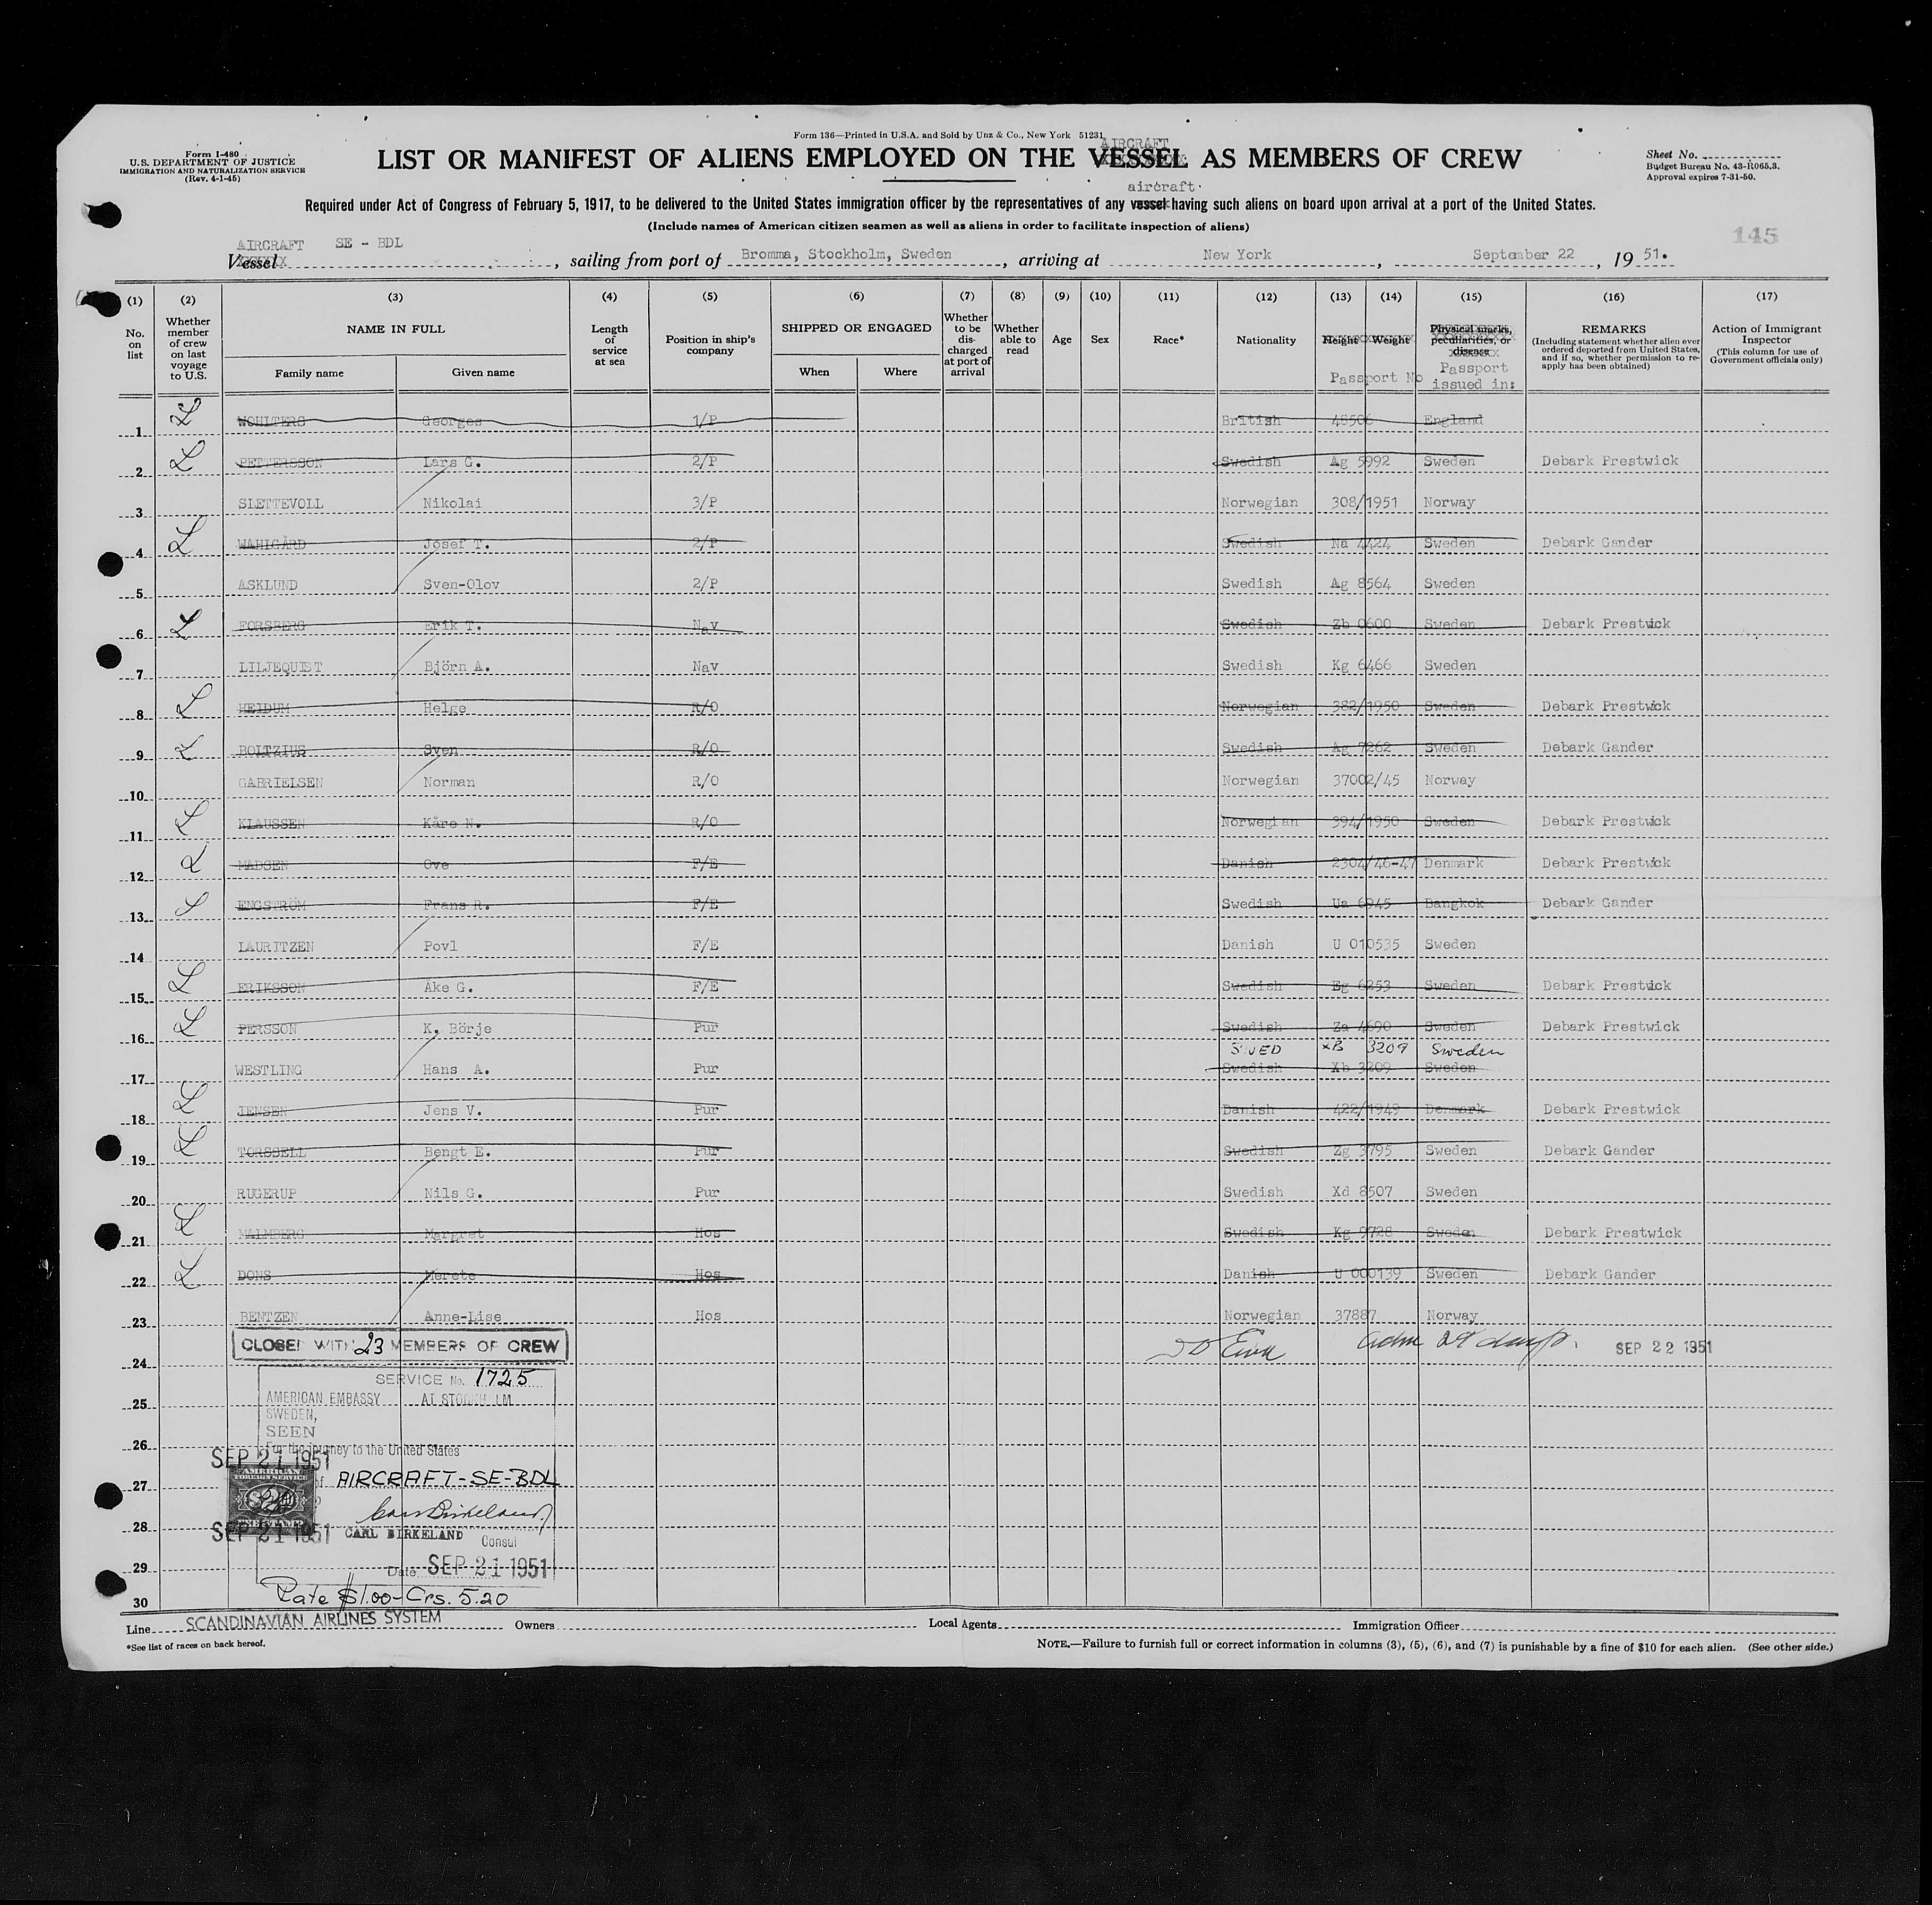 Form 136—Printed in U.S.A. and Sold by Unz & Co., New York 51231
Form I-480
U.S. DEPARTMENT OF JUSTICE
IMMIGRATION AND NATURALIZATION SERVICE
(Rev. 4-1-45)
AIRCRAFT
LIST OR MANIFEST OF ALIENS EMPLOYED ON THE VESSEL AS MEMBERS OF CREW
Sheet No.
Budget Bureau No. 43-R065.3.
Approval expires 7-31-50.
aircraft
Required under Act of Congress of February 5, 1917, to be delivered to the United States immigration officer by the representatives of any vessel having such aliens on board upon arrival at a port of the United States.
(Include names of American citizen seamen as well as aliens in order to facilitate inspection of aliens)
145
AIRCRAFT SE - BDL
Vessel, sailing from port of Bromma, Stockholm, Sweden, arriving at New York, September 22, 1951.
(1) (2) (3) (4) (5) (6) (7) (8) (9) (10) (11) (12) (13) (14) (15) (16) (17)
No. on list
Whether member of crew on last voyage to U.S.
NAME IN FULL
Family name Given name
Length of service at sea
Position in ship's company
SHIPPED OR ENGAGED
When Where
Whether to be discharged at port of arrival
Whether able to read
Age
Sex
Race*
Nationality
Height Weight
Passport No
Physical marks, peculiarities, or disease
Passport issued in:
REMARKS
(Including statement whether alien ever ordered deported from United States, and if so, whether permission to reapply has been obtained)
Action of Immigrant Inspector
(This column for use of Government officials only)
1 L WOHLTERS Georges 1/P British 48506 England
2 L PETTERSSON Lars G. 2/P Swedish Ag 5992 Sweden Debark Prestwick
3 SLETTEVOLL Nikolai 3/P Norwegian 308/1951 Norway
4 L WAHIGÅRD Josef T. 2/P Swedish Na 4424 Sweden Debark Gander
5 ASKLUND Sven-Olov 2/P Swedish Ag 8564 Sweden
6 L FORSBERG Erik T. Nav Swedish Zb 0600 Sweden Debark Prestwick
7 LILJEQUIST Björn A. Nav Swedish Kg 6466 Sweden
8 L HEIDUM Helge R/O Norwegian 382/1950 Sweden Debark Prestwick
9 L BOLTZIUS Sven R/O Swedish Ag 7262 Sweden Debark Gander
10 GABRIELSEN Norman R/O Norwegian 37002/45 Norway
11 L KLAUSSEN Kåre N. R/O Norwegian 394/1950 Sweden Debark Prestwick
12 L MADSEN Ove F/E Danish 2304/46-47 Denmark Debark Prestwick
13 L ENGSTRÖM Frans R. F/E Swedish Ua 6945 Bangkok Debark Gander
14 LAURITZEN Povl F/E Danish U 010535 Sweden
15 L ERIKSSON Åke G. F/E Swedish Eg 6253 Sweden Debark Prestwick
16 L PERSSON K. Börje Pur Swedish Za 4690 Sweden Debark Prestwick
SWED XB 3209 Sweden
17 WESTLING Hans A. Pur Swedish Xb 3209 Sweden
18 L JENSEN Jens V. Pur Danish 422/1949 Denmark Debark Prestwick
19 L TORSSELL Bengt E. Pur Swedish Zg 3795 Sweden Debark Gander
20 RUGERUP Nils G. Pur Swedish Xd 8507 Sweden
21 L MALMBERG Margret Hos Swedish Kg 9728 Sweden Debark Prestwick
22 L DONS Merete Hos Danish U 000139 Sweden Debark Gander
23 BENTZEN Anne-Lise Hos Norwegian 37887 Norway
CLOSED WITH 23 MEMBERS OF CREW
SEP 22 1951
24
SERVICE No. 1725
25
AMERICAN EMBASSY AT STOCKHOLM
SWEDEN,
SEEN
26
For the journey to the United States
SEP 21 1951
AMERICAN FOREIGN SERVICE
of AIRCRAFT-SE-BDL
27
FEE STAMP
Carl Birkeland
28
SEP 21 1951 CARL BIRKELAND
Consul
29
Date SEP 21 1951
30
Rate $1.00-Crs. 5.20
Line SCANDINAVIAN AIRLINES SYSTEM Owners Local Agents Immigration Officer
*See list of races on back hereof.
NOTE.—Failure to furnish full or correct information in columns (3), (5), (6), and (7) is punishable by a fine of $10 for each alien. (See other side.)